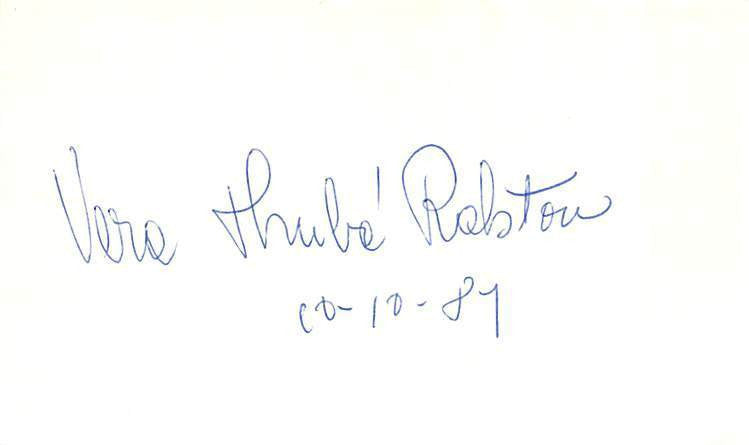 Vera Hrubá Ralston
10-10-87